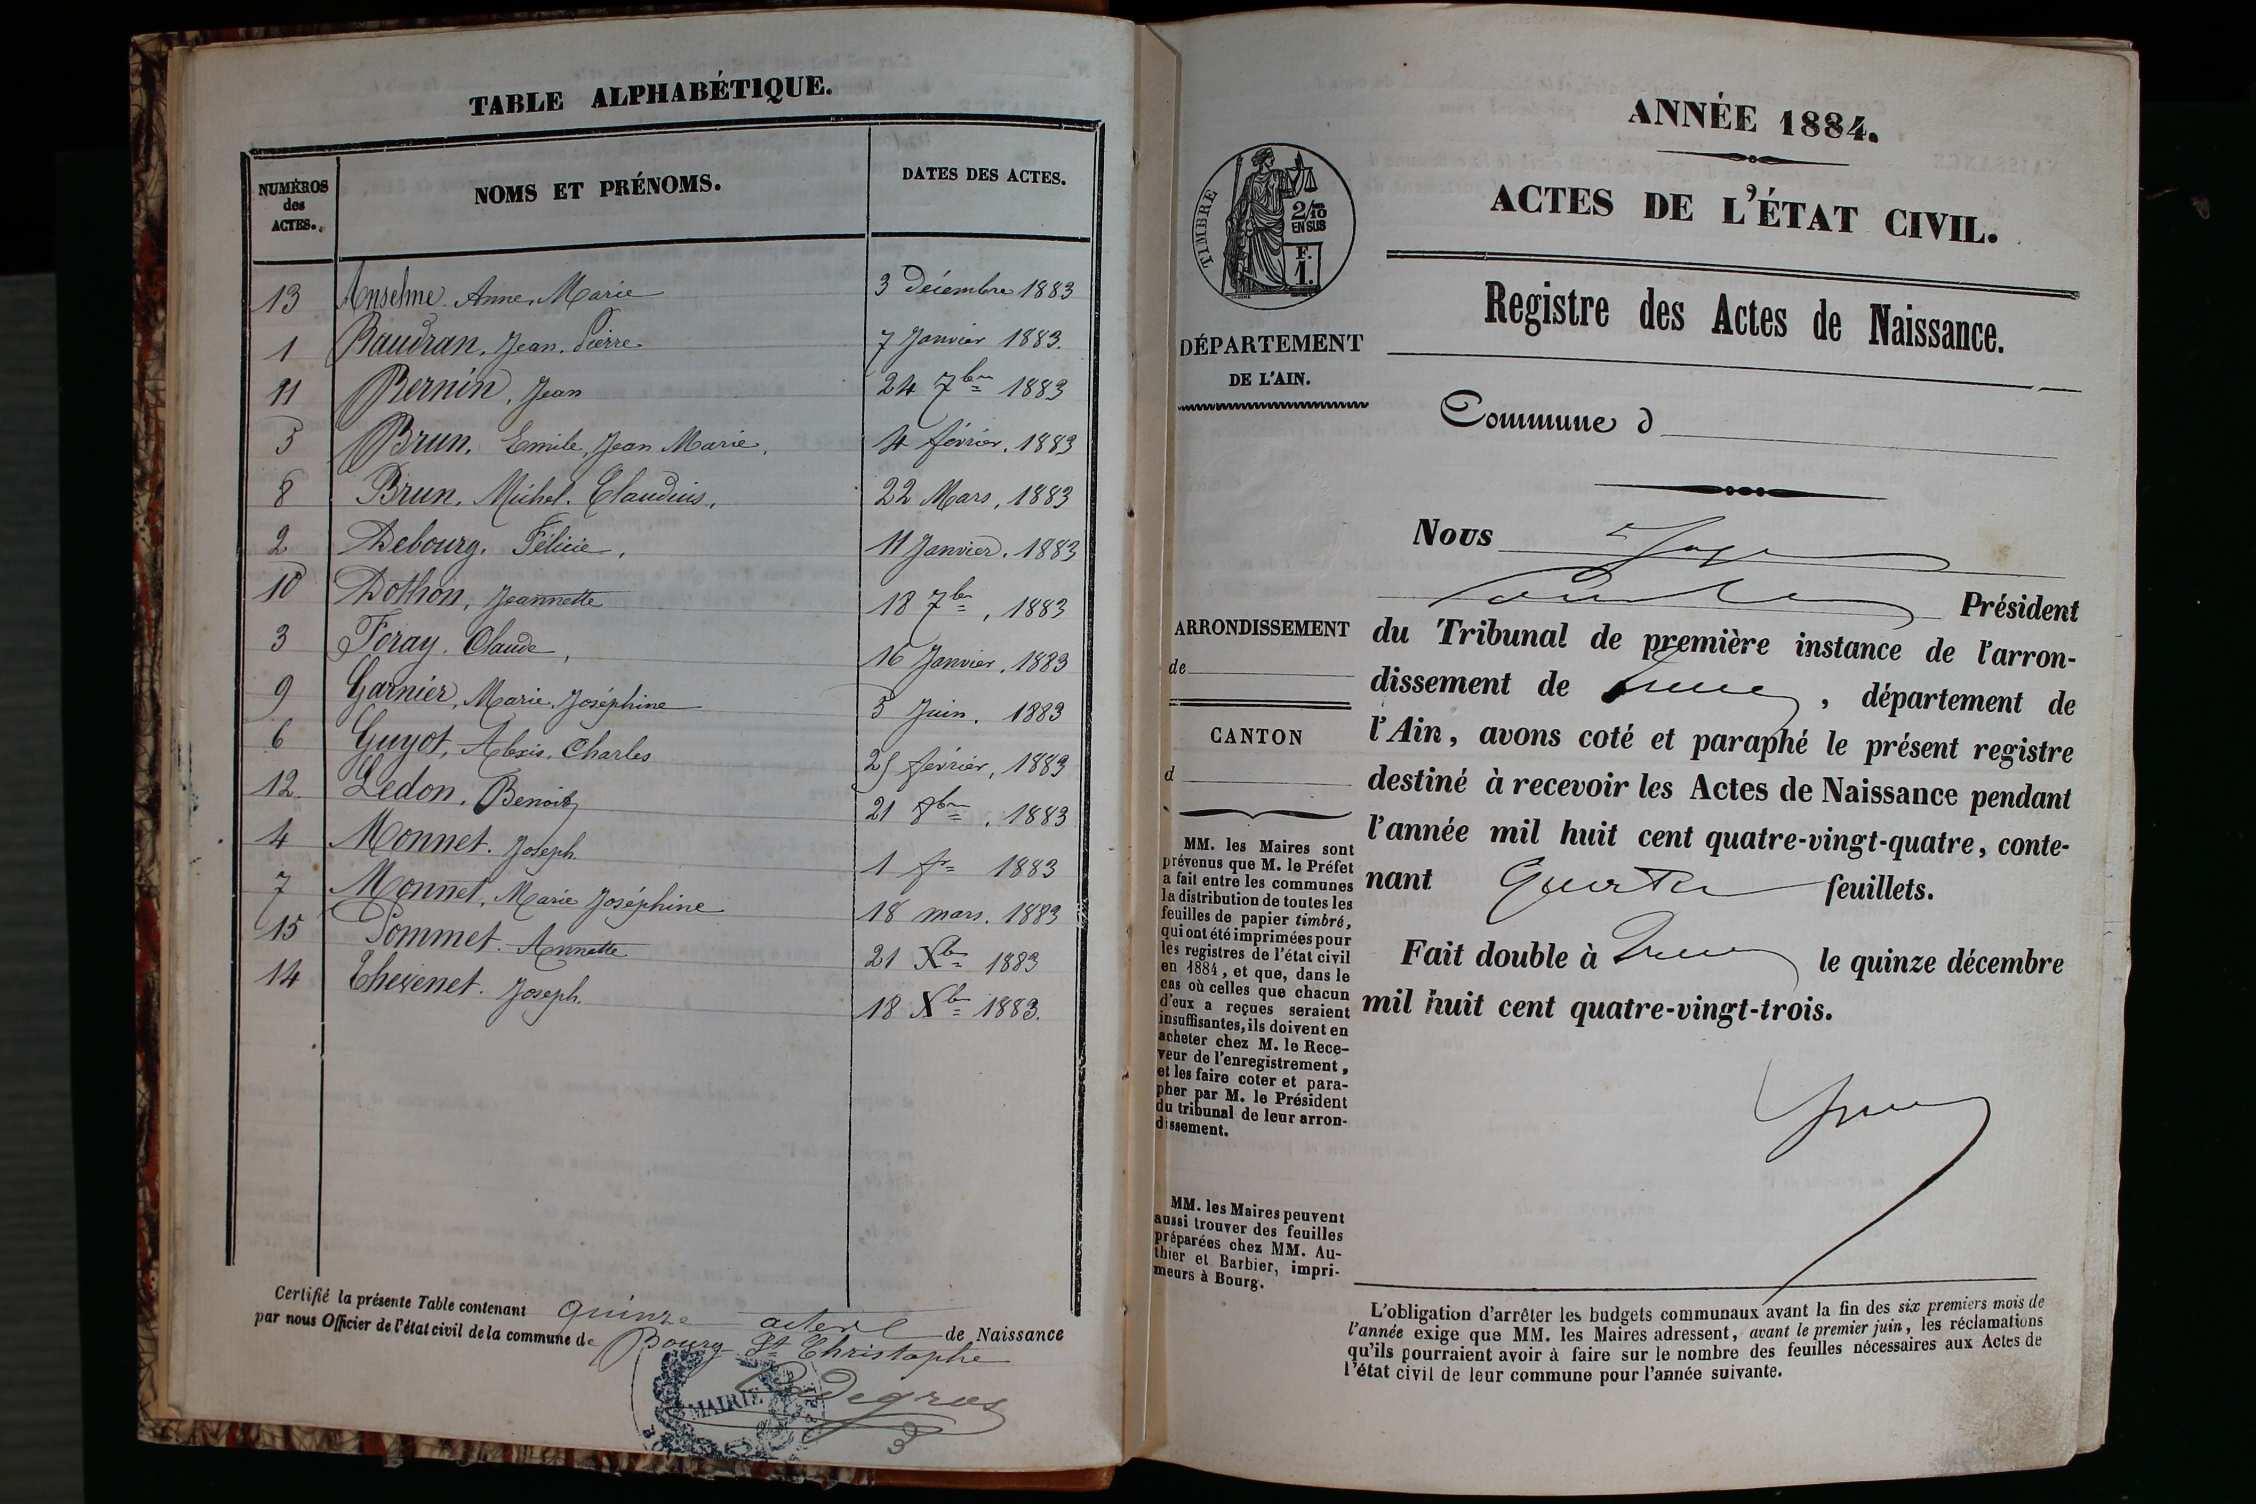 TABLE ALPHABÉTIQUE.
NUMÉROS des ACTES. NOMS ET PRÉNOMS. DATES DES ACTES.
13 Anselme. Anne, Marie 3 décembre 1883
1 Baudran, Jean, Pierre 7 Janvier 1883.
11 Bernin, Jean 24 7bre 1883
5 Brun, Emile, Jean Marie, 4 février, 1883
8 Brun, Michel. Claudius, 22 Mars, 1883
2 Debourg. Félicie, 11 Janvier, 1883
10 Dothon, Jeannette 18 7bre, 1883
3 Foray, Claude, 16 Janvier, 1883
9 Garnier, Marie, Joséphine 5 Juin, 1883
6 Guyot, Alexis, Charles 25 février, 1883
12 Ledon, Benoit 21 8bre, 1883
4 Monnet. Joseph. 1 fr 1883
7 Monnet, Marie Joséphine 18 mars, 1883
15 Pommet. Annette 21 Xbre 1883
14 Thevenet. Joseph. 18 Xbre 1883.
Certifié la présente Table contenant quinze actes de Naissance
par nous Officier de l'état civil de la commune de Bourg St Christophe
MAIRIE
ANNÉE 1884.
ACTES DE L'ÉTAT CIVIL.
TIMBRE
2/10
EN SUS
F.
1.
Registre des Actes de Naissance.
DÉPARTEMENT
DE L'AIN.
Commune d
Nous
Président
ARRONDISSEMENT
de
CANTON
d
du Tribunal de première instance de l'arron-
dissement de , département de
l'Ain, avons coté et paraphé le présent registre
destiné à recevoir les Actes de Naissance pendant
l'année mil huit cent quatre-vingt-quatre, conte-
nant feuillets.
Fait double à le quinze décembre
mil huit cent quatre-vingt-trois.
MM. les Maires sont
prévenus que M. le Préfet
a fait entre les communes
la distribution de toutes les
feuilles de papier timbré,
qui ont été imprimées pour
les registres de l'état civil
en 1884, et que, dans le
cas où celles que chacun
d'eux a reçues seraient
insuffisantes, ils doivent en
acheter chez M. le Rece-
veur de l'enregistrement,
et les faire coter et para-
pher par M. le Président
du tribunal de leur arron-
dissement.
MM. les Maires peuvent
aussi trouver des feuilles
préparées chez MM. Au-
thier et Barbier, impri-
meurs à Bourg.
L'obligation d'arrêter les budgets communaux avant la fin des six premiers mois de
l'année exige que MM. les Maires adressent, avant le premier juin, les réclamations
qu'ils pourraient avoir à faire sur le nombre des feuilles nécessaires aux Actes de
l'état civil de leur commune pour l'année suivante.